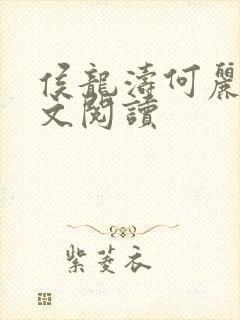 侯龍濤何麗
文閱讀
紫菱衣